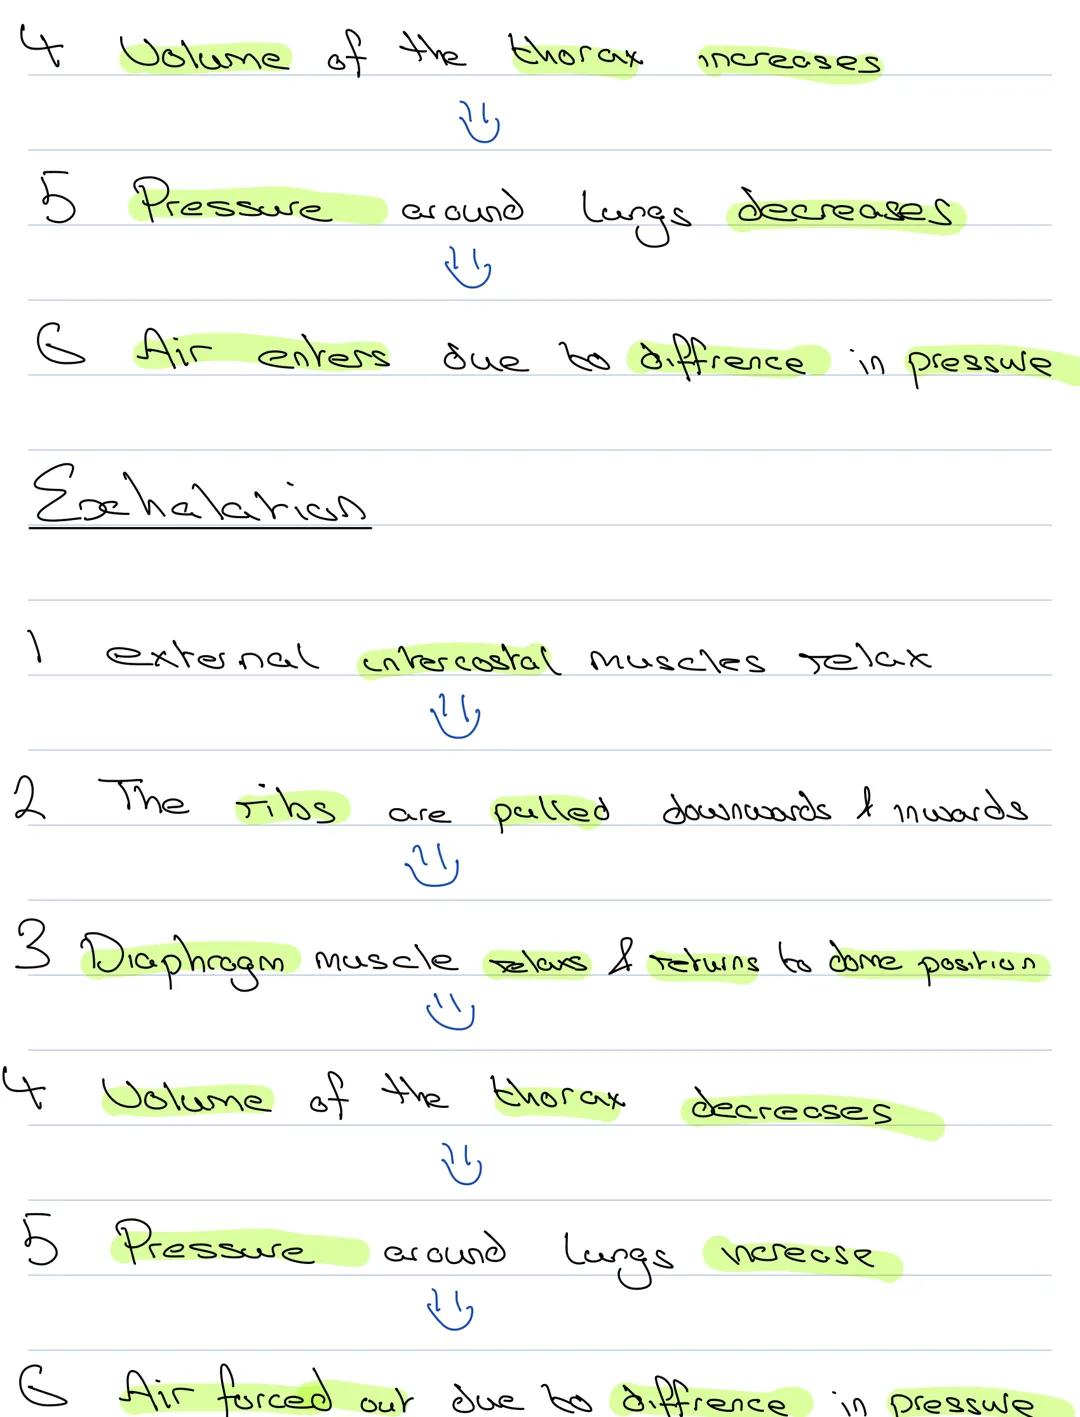 4 Volume of the thorax increases
5 Pressure around lungs decreases
6 Air enters due to diffrence in pressure
Exhalation
1 external intercostal muscles relax
2 The ribs are pulled downwards & inwards
3 Diaphragm muscle relaxs & returns to dome position
4 Volume of the thorax decreases
5 Pressure around lungs increase
6 Air forced out due to diffrence in pressure